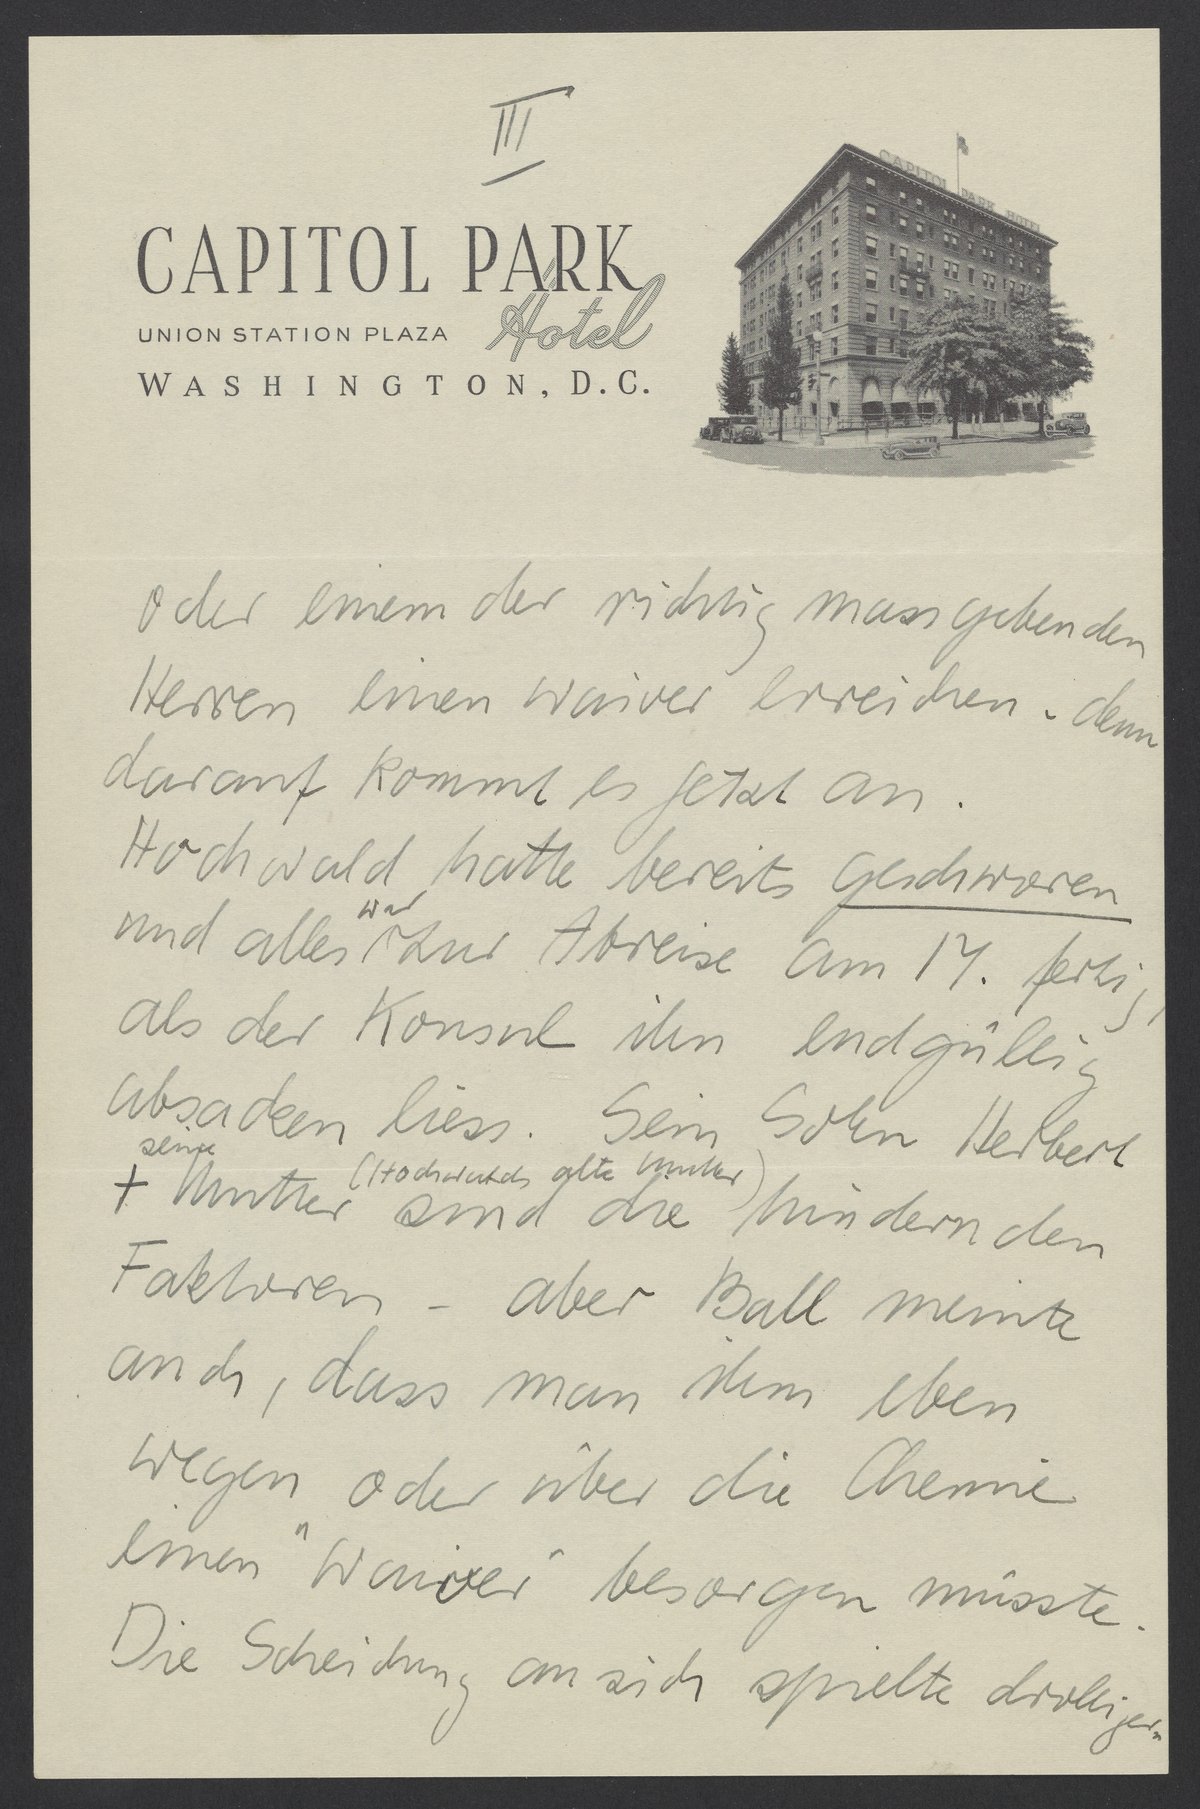 III
CAPITOL PARK
Hotel
UNION STATION PLAZA
WASHINGTON, D.C.
CAPITOL PARK HOTEL
oder einem der richtig massgebenden
Herren einen waiver erreichen - denn
darauf kommt es jetzt an.
Hochwald hatte bereits geschworen
und alles war zur Abreise am 17. fertig,
als der Konsul ihn endgültig
absacken liess. Sein Sohn Herbert
+ seine Mutter (Hochwalds alte Mutter) sind die hindernden
Faktoren - aber Ball meinte
auch, dass man ihm eben
wegen oder über die Chemie
einen "Waiver" besorgen müsste.
Die Scheidung an sich spielte drolliger-